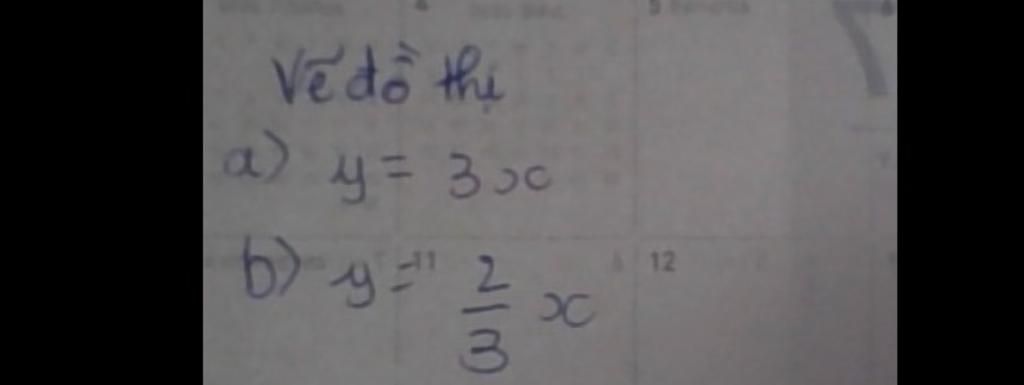 Vẽ đồ thị
a) y = 3x
b) y = 2/3 x
11
12